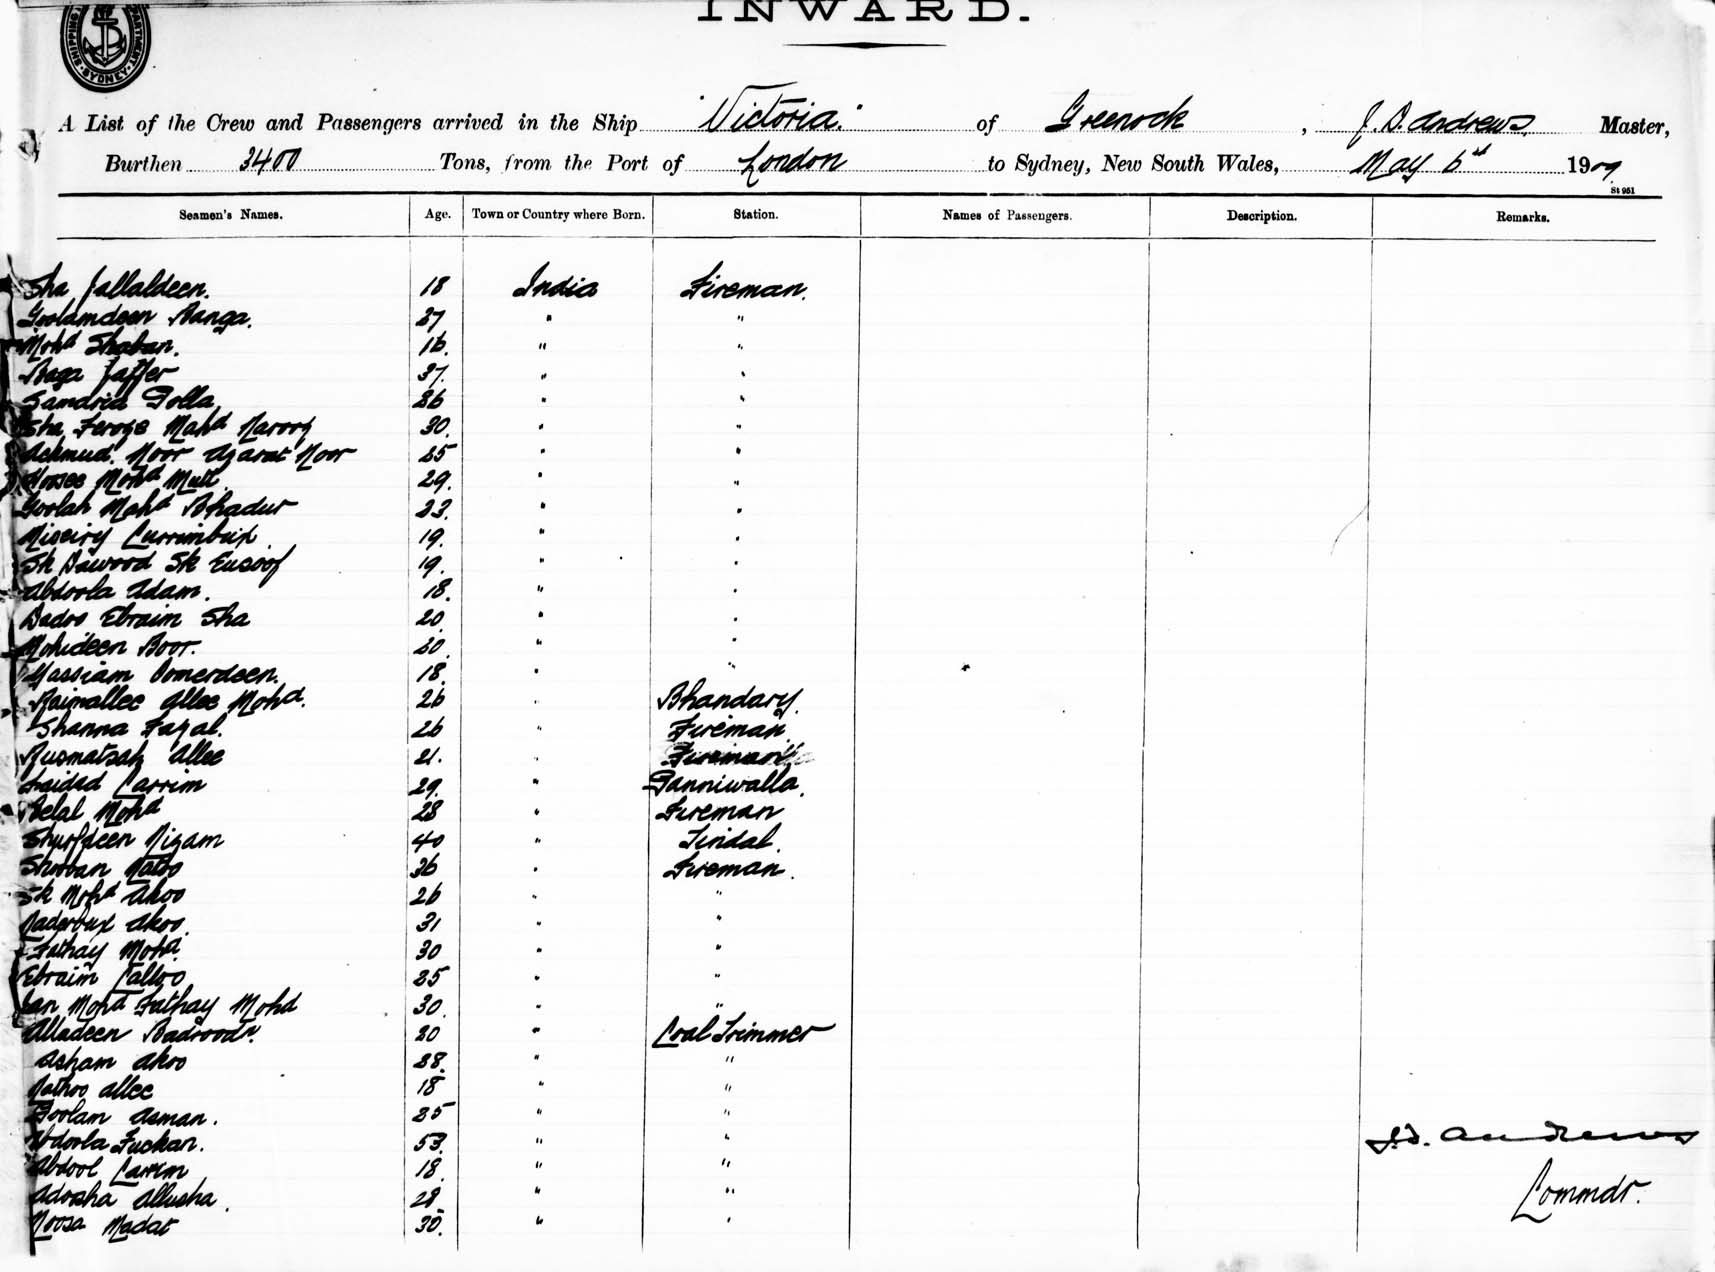 INWARD.
SHIPPING DEPARTMENT SYDNEY
A List of the Crew and Passengers arrived in the Ship "Victoria" of Greenock, J. D. Andrews Master,
Burthen 3400 Tons, from the Port of London to Sydney, New South Wales, May 6th 1909
St 951
Seamen's Names. Age. Town or Country where Born. Station. Names of Passengers. Description. Remarks.
Sha Jallaldeen. 18 India Fireman.
Goolamdeen Banga. 27 " "
Mohd Shaban. 16. " "
Baga Jaffer 37. " "
Samdria Golla 26 " "
Sha Feroze Mahd 30. " "
Achmud Noor Azarat Noor 25 " "
Moosee Mohd Mull 29. " "
Goolah Mahd Bhadur 23. " "
Currimbux 19. " "
Sk Dawood Sk Eusoof 19. " "
Abdoola Adam. 18. " "
Dadoo Ebraim Sha 20. " "
Mohideen Boor. 20. " "
Oomerdeen. 18. " "
Raimallee Allee Mohd. 26 " Bhandary.
Shanna Fazal. 26 " Fireman.
Rusmatsah Allee 21. " Fireman
Saidad Carrim 29. " Panniwalla.
Belal Mohd 28 " Fireman
Shurfdeen Nizam 40 " Tindal.
Shooban Natoo 36 " Fireman.
Sk Mohd Akoo 26 " "
Naderbux Akoo. 31 " "
Fathay Mohd. 30 " "
Ebraim Calloo 25 " "
Jan Mohd Fathay Mohd 30. " "
Alladeen Badroodn. 20 " Coal Trimmer
Asham Akoo 28. " "
Nathoo Allee 18 " "
Goolam Asman. 25 " "
Abdoola Fuckan. 53. " " J.D. Andrews
Abdool Carrim 18. " "
Adosha Allusha. 28 " " Commdr.
Moosa Madat 30. " "